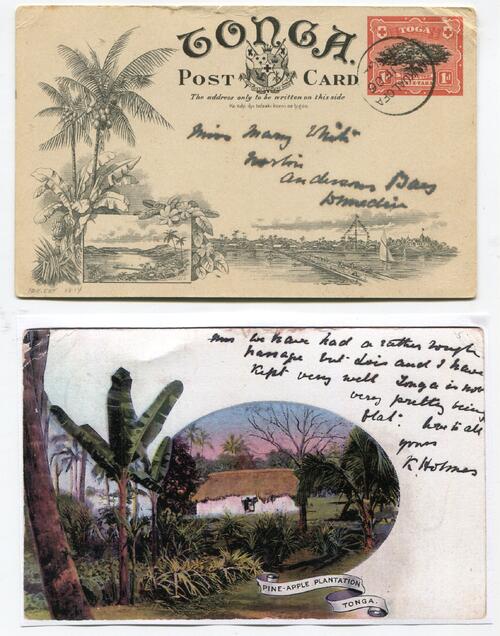 TONGA.
POST CARD
The address only to be written on this side
TOGA
1d 1d
NUKUALOFA
Miss Mary White
Anderson's Bay
Dunedin
we have had a rather rough
passage but Lois and I have
kept very well Tonga is not
very pretty being
flat. love to all
yours
K. Holmes
PINE-APPLE PLANTATION
TONGA.